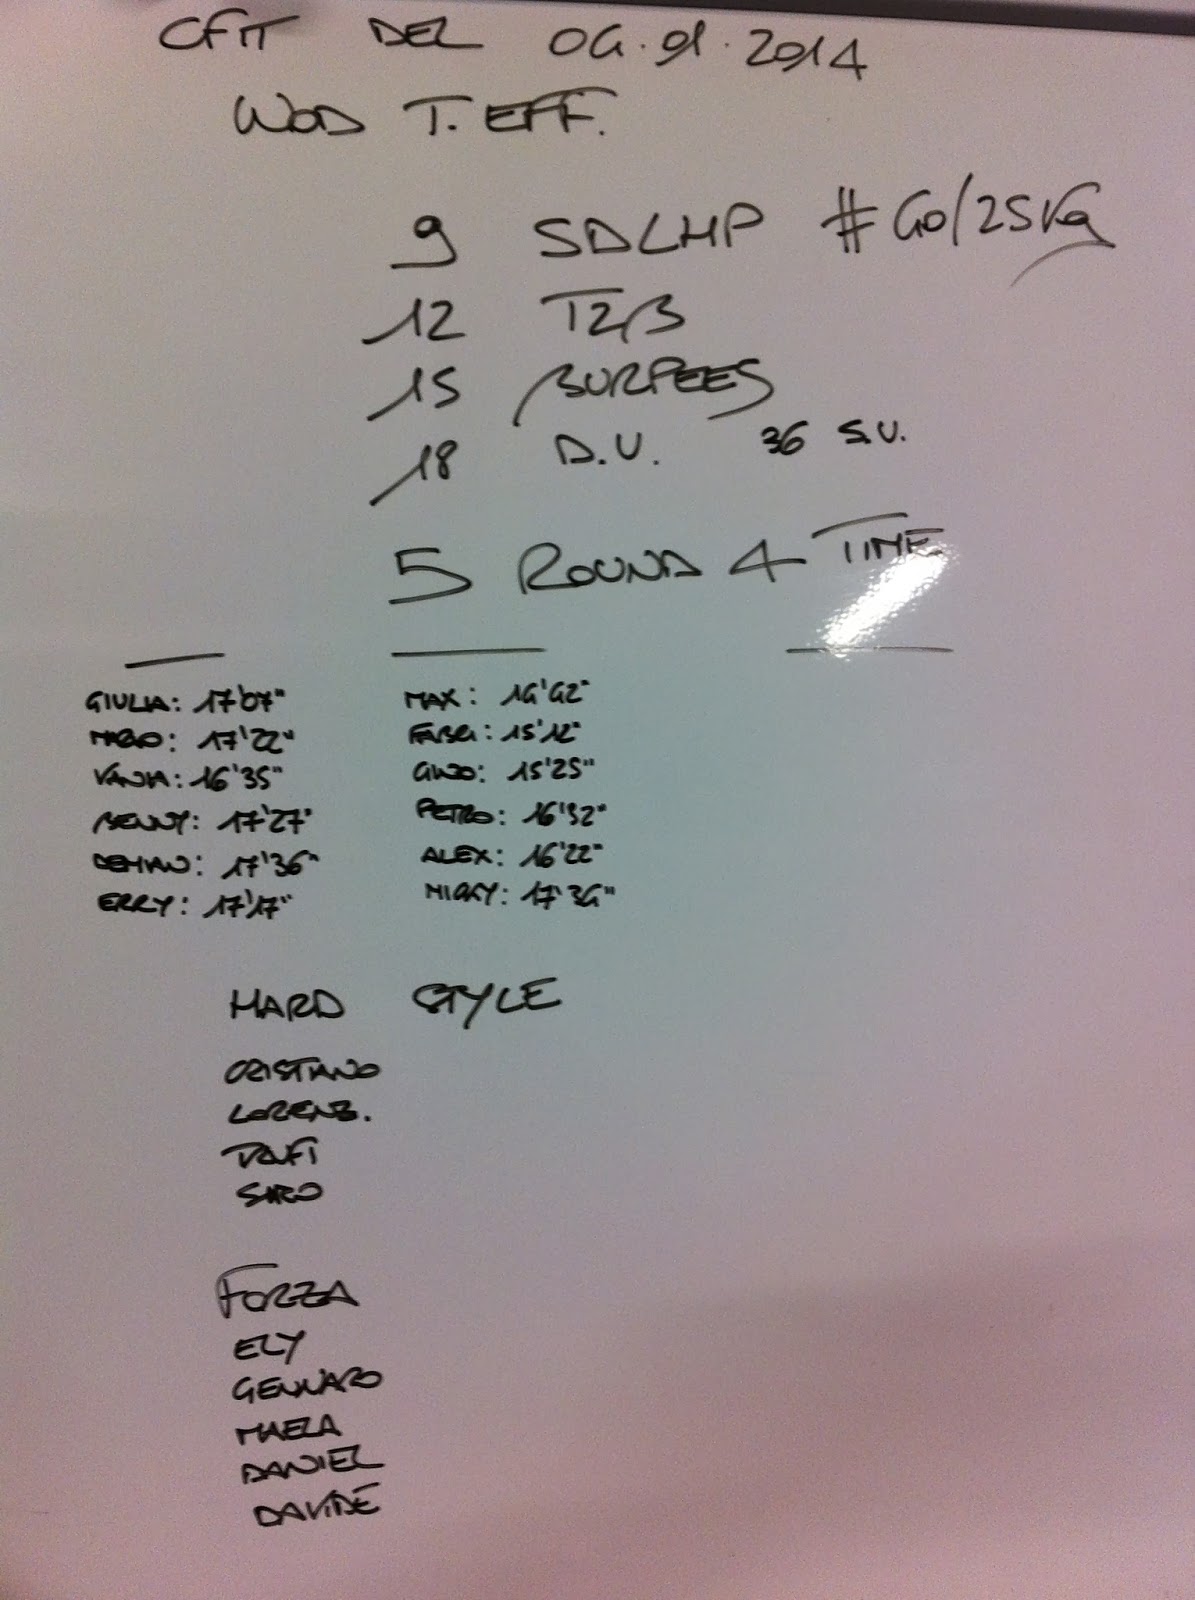 CFIT DEL 04.01.2014
WOD T. EFF.
9 SDLHP #40/25Kg
12 T2B
15 BURPEES
18 D.U. 36 S.U.
5 ROUND 4 TIME
GIULIA: 17'07"
17'22"
VANIA: 16'35"
BENNY: 17'27"
DEMIAN: 17'36"
ERRY: 17'17"
MAX: 14'42"
FABRI: 15'12"
GINO: 15'25"
PETRO: 16'32"
ALEX: 16'22"
MICKY: 17'34"
HARD STYLE
CRISTIANO
LORENZ.
SIRO
FORZA
ELY
GENNARO
MAELA
DANIEL
DAVIDE